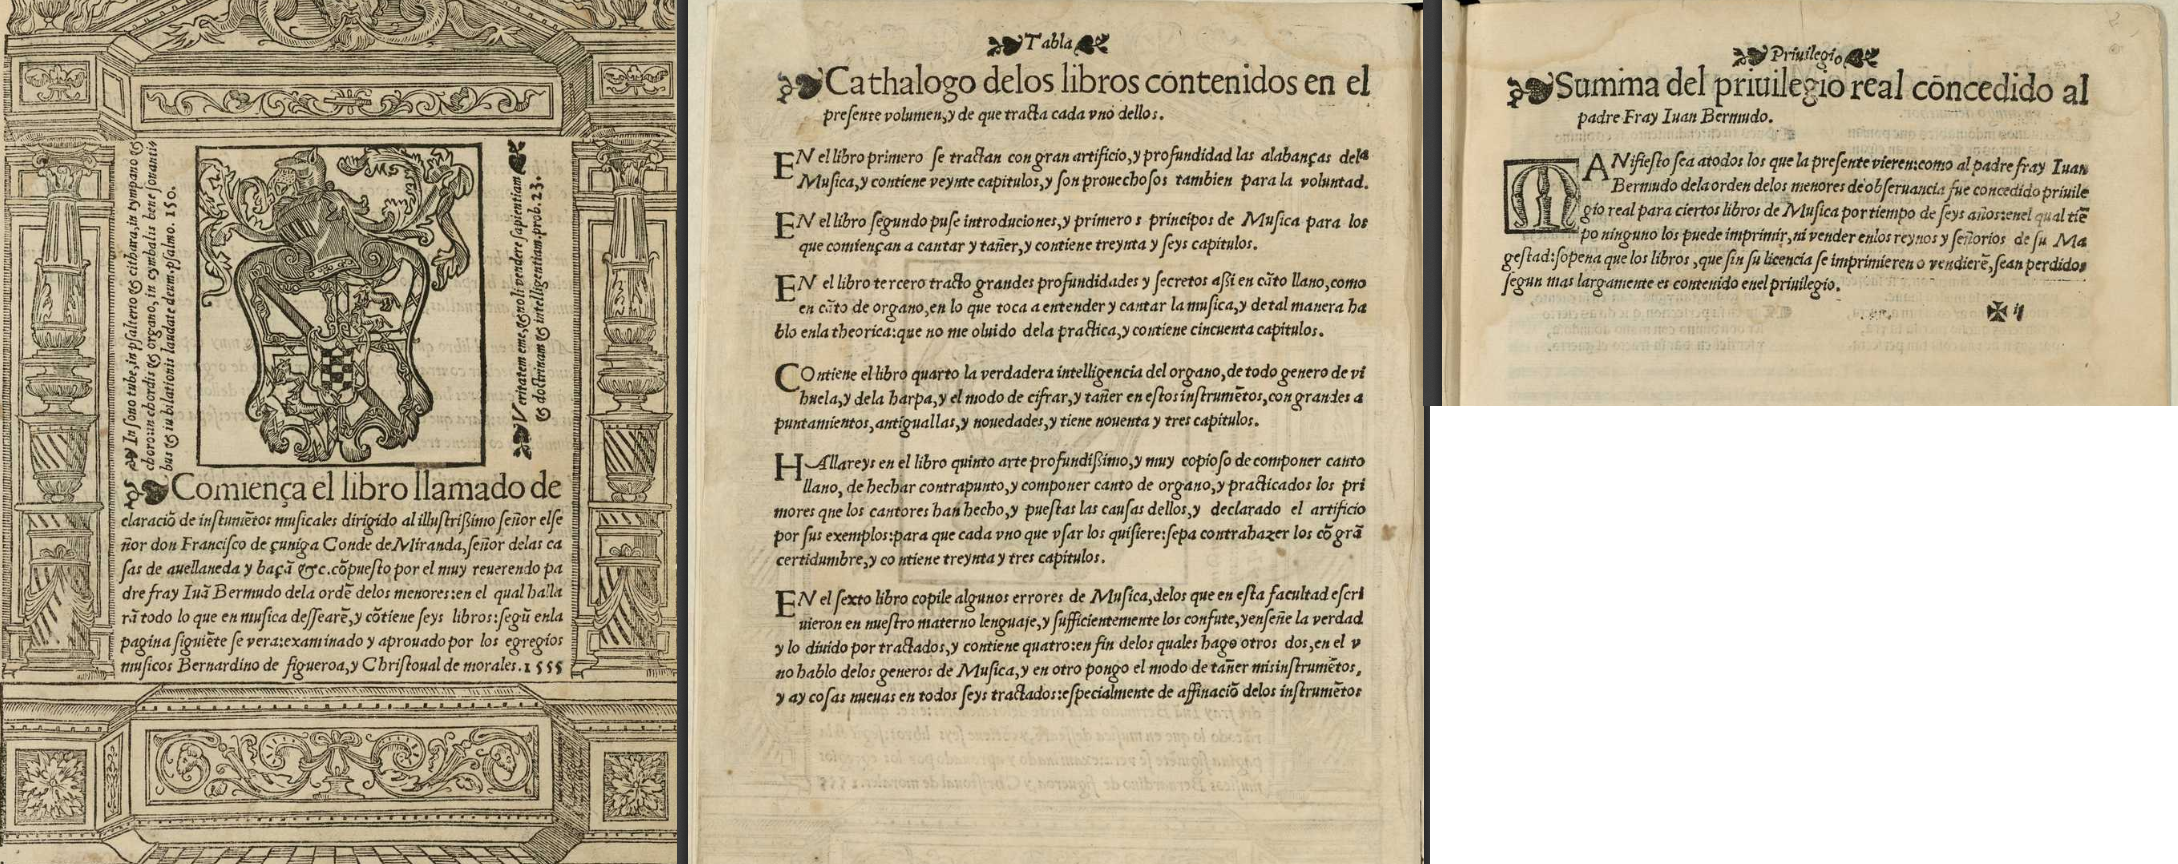 In sono tubę, in psalterio & cithara, in tympano &
choro: in chordis & organo, in cymbalis bene sonanti
bus & iubilationis laudate deum. psalmo. 150.
Veritatem eme, & noli vendere sapientiam
& doctrinam & intelligentiam. prob. 23.
Comiença el libro llamado de
claraciõ de instumẽtos musicales dirigido al illustrißimo señor el se
ñor don Francisco de çuniga Conde de Miranda, señor delas ca
sas de auellaneda y baçã &c. cõpuesto por el muy reuerendo pa
dre fray Iuã Bermudo dela ordẽ delos menores: en el qual halla
rã todo lo que en musica dessearẽ, y cõtiene seys libros: segũ enla
pagina siguiẽte se vera: examinado y aprouado por los egregios
musicos Bernardino de figueroa, y Christoual de morales. 1555
Tabla
Cathalogo delos libros contenidos en el
presente volumen, y de que tracta cada vno dellos.
EN el libro primero se tractan con gran artificio, y profundidad las alabanças dela
Musica, y contiene veynte capitulos, y son prouechosos tambien para la voluntad.
EN el libro segundo puse introduciones, y primeros principos de Musica para los
que comiençan a cantar y tañer, y contiene treynta y seys capitulos.
EN el libro tercero tracto grandes profundidades y secretos aßi en cãto llano, como
en cãto de organo, en lo que toca a entender y cantar la musica, y de tal manera ha
blo enla theorica: que no me oluido dela practica, y contiene cincuenta capitulos.
COntiene el libro quarto la verdadera intelligencia del organo, de todo genero de vi
huela, y dela harpa, y el modo de cifrar, y tañer en estos instrumẽtos, con grandes a
puntamientos, antiguallas, y nouedades, y tiene nouenta y tres capitulos.
HAllareys en el libro quinto arte profundißimo, y muy copioso de componer canto
llano, de hechar contrapunto, y componer canto de organo, y practicados los pri
mores que los cantores han hecho, y puestas las causas dellos, y declarado el artificio
por sus exemplos: para que cada vno que vsar los quisiere: sepa contrahazer los cõ grã
certidumbre, y contiene treynta y tres capitulos.
EN el sexto libro copile algunos errores de Musica, delos que en esta facultad escri
uieron en nuestro materno lenguaje, y sufficientemente los confute, y enseñe la verdad
y lo diuido por tractados, y contiene quatro: en fin delos quales hago otros dos, en el v
no hablo delos generos de Musica, y en otro pongo el modo de tañer mis instrumẽtos,
y ay cosas nueuas en todos seys tractados: especialmente de affinaciõ delos instrumẽtos
Priuilegio
Summa del priuilegio real cõcedido al
padre Fray Iuan Bermudo.
MANifiesto sea atodos los que la presente vieren: como al padre fray Iuan
Bermudo dela orden delos menores de obseruancia fue concedido priuile
gio real para ciertos libros de Musica por tiempo de seys años: enel qual tiẽ
po ninguno los puede imprimir, ni vender enlos reynos y señorios de su Ma
gestad: sopena que los libros, que sin su licencia se imprimieren o vendierẽ, sean perdidos
segun mas largamente es contenido enel priuilegio.
✠ ij